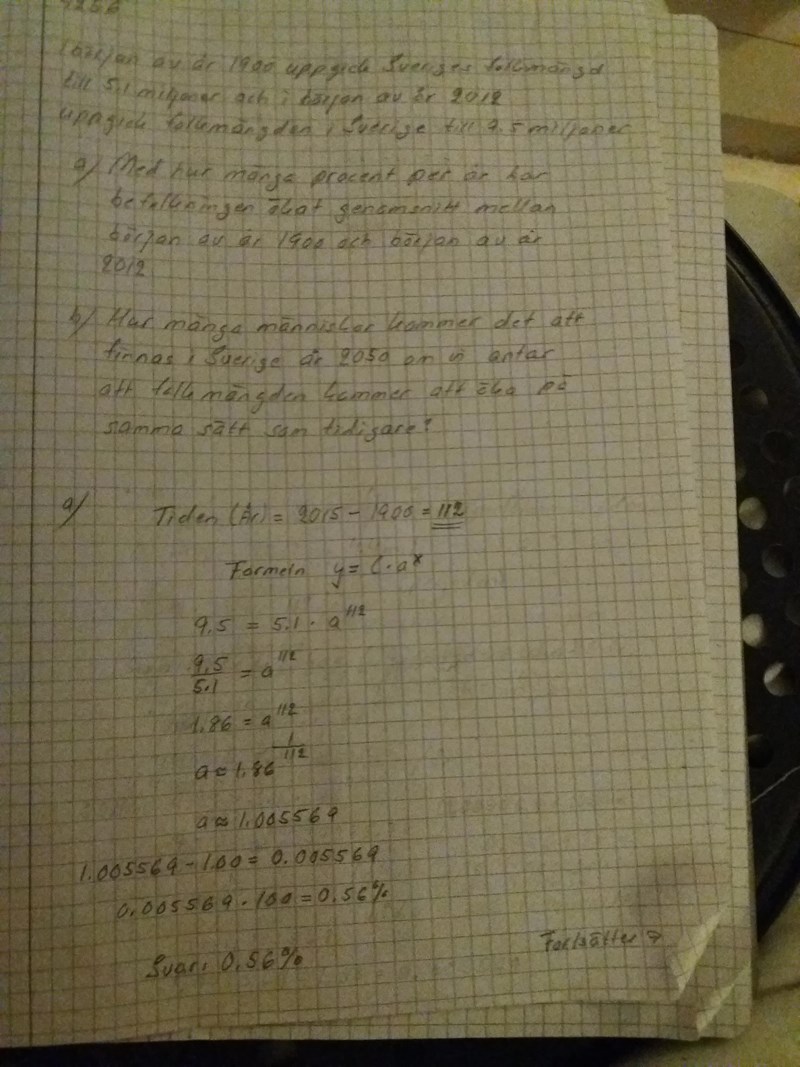 4256
I början av år 1900 uppgick Sveriges folkmängd
till 5.1 miljoner och i början av år 2012
uppgick folkmängden i Sverige till 9.5 miljoner
a) Med hur många procent per år har
befolkningen ökat genomsnitt mellan
början av år 1900 och början av år
2012
b) Hur många människor kommer det att
finnas i Sverige år 2050 om vi antar
att folkmängden kommer att öka på
samma sätt som tidigare?
a) Tiden (År) = 2015 - 1900 = 112
Formeln y = C · a^x
9.5 = 5.1 · a^112
9.5/5.1 = a^112
1.86 = a^112
a ≈ 1.86^(1/112)
a ≈ 1.005569
1.005569 - 1.00 = 0.005569
0.005569 · 100 = 0.56%
Svar: 0.56%
Fortsätter →